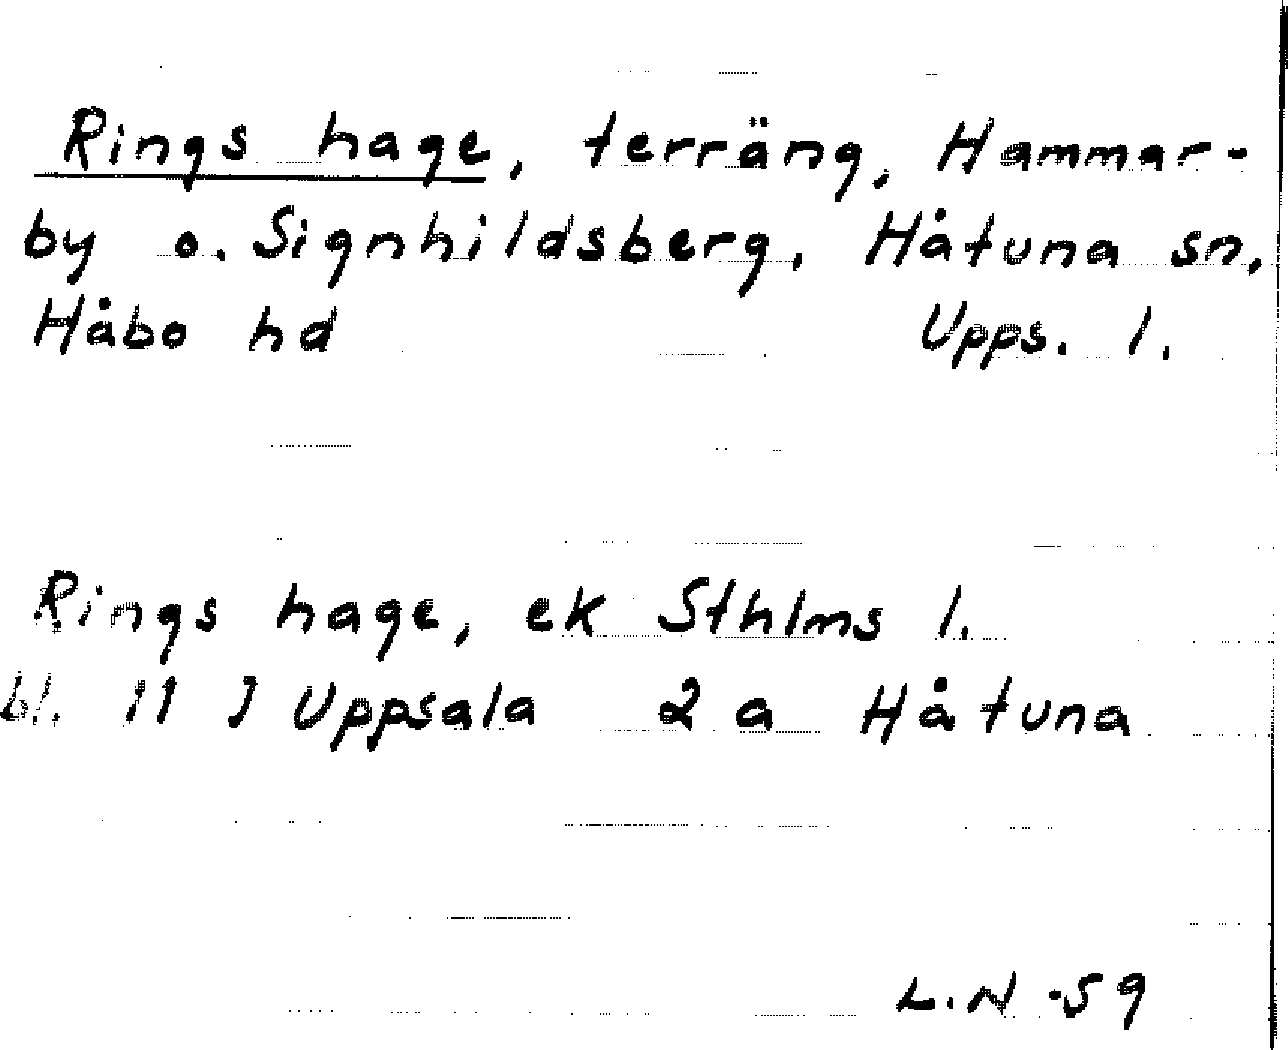 Rings hage, terräng, Hammar-
by o. Signhildsberg, Håtuna sn,
Håbo hd Upps. l.
Rings hage, ek Sthlms l.
bl. 11 J Uppsala 2 a Håtuna
L.N -59